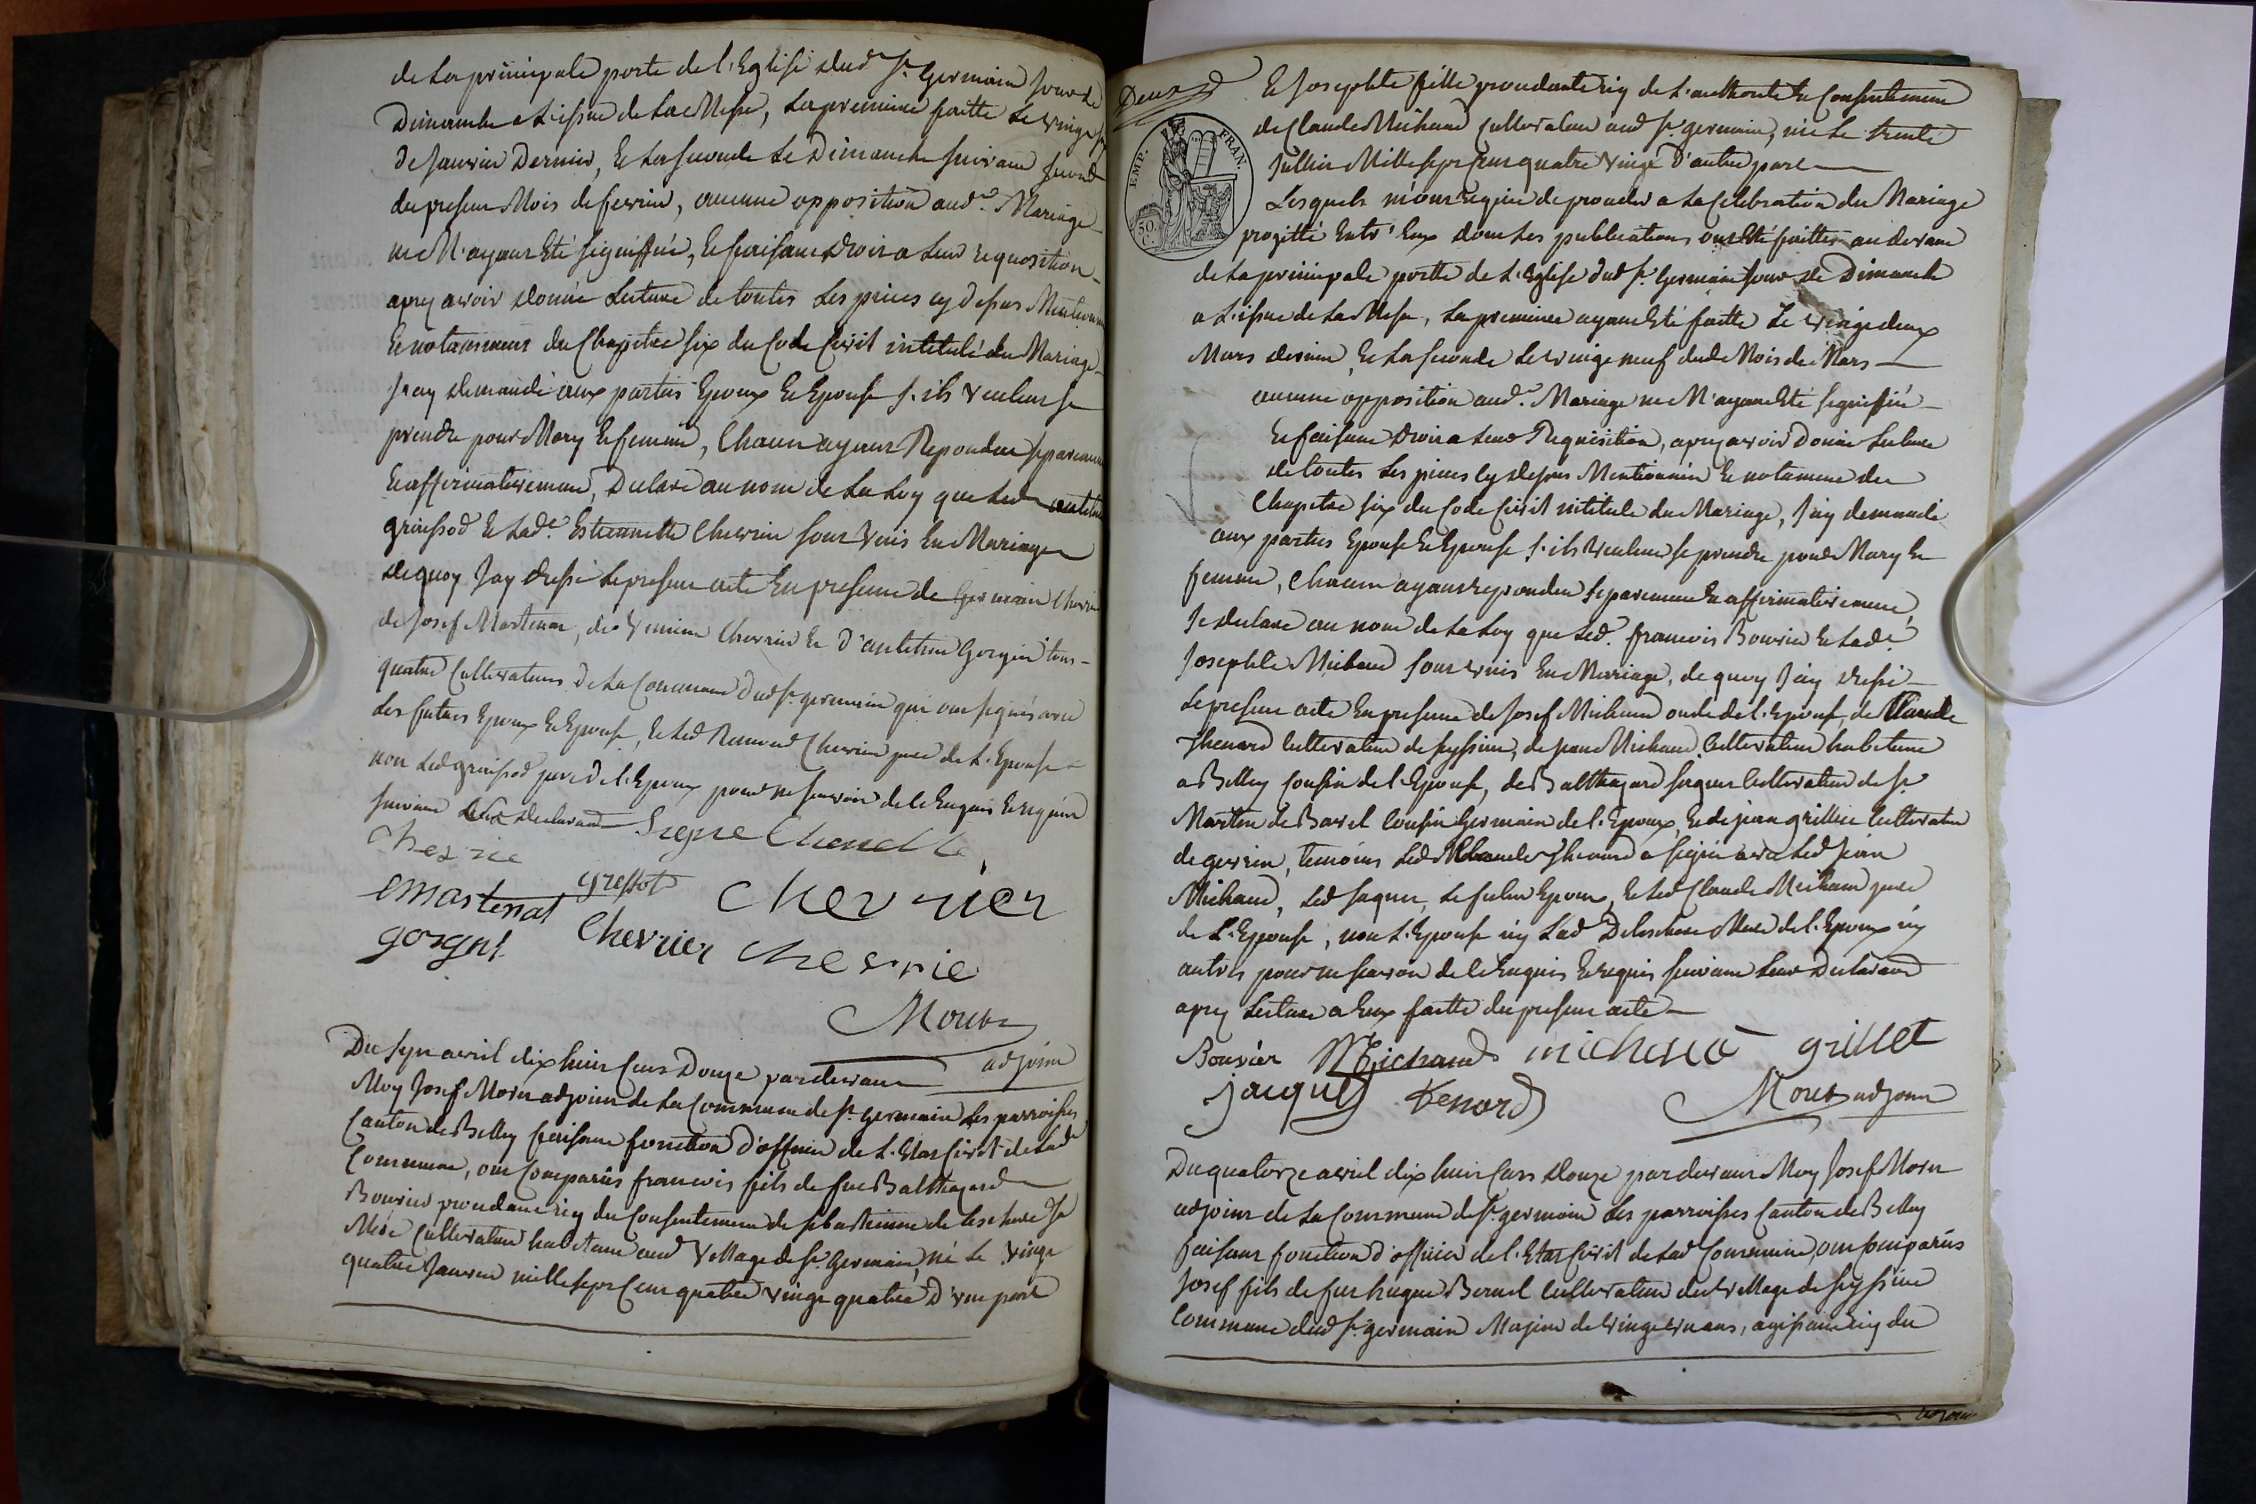 de La principale porte de l'Eglise dud St Germain Jour de
Dimanche a L'issue de La Messe, La premiere faitte Le vingt six
de Janvier Dernier, Et La seconde Le Dimanche suivant second
du present Mois de fevrier, aucune opposition aud. Mariage
ne M'ayant Eté signiffiée, Et faisant Droit a Leur requosition
apres avoir donné Lecture de toutes Les pieces cy dessus Mentionnées
Et notamment du Chapitre six du Code Civil intitulé du Mariage
J'ay demandé aux parties Epoux Et Epouse s'ils veulent se
prendre pour Mary Et femme, Chacun ayant Repondu separement
Et affirmativement, Declare au nom de La Loy que Led antelme
grissod Et Lade Estiennette Chevrier sont unis En Mariage
de quoy Jay dressé Le present acte En presence de Germain Chevrier
de Josef Martenat, de Chevrier Et D'antelme Gorgin tous
quatre Cultivateurs de La Commune dud St germain qui ont signés avec
Les futurs Epoux Et Epouse, Et Led Chevrier pere de L'Epouse
non Led grissod pere de l'Epoux pour ne scavoir de ce Enquis Et requis
suivant sa declaration
Chevrie
Gressot Chevrier
Martenat
gorgnt Chevrier Chevrie
Moret
adjoint
Du sept avril dix huit Cent Douze pardevant
Moy Josef Moret adjoint de La Commune de St germain Les parroisses
Canton de Belley faisant fonction d'officier de L'Etat Civil de Lade
Commune, ont Comparus francois fils de feu Balthazard
Bouvier procedant icy du Consentement de sebastienne de Leschere sa
Mére Cultivateur habitant aud village de St. Germain, né Le vingt
quatre Janvier mille sept Cent quatre vingt quatre D'une part
Deux
EMP. FRAN.
50 C.
Et Josephte fille procedante icy de L'authorité Et Consentement
de Claude Michaud Cultivateur aud St. germain, née Le trente
Juillet Mille sept Cent quatre vingt D'autre part
Lesquels m'ont requis de proceder a La Celebration du Mariage
projetté Entr'Eux dont Les publications ont Eté faittes au devant
de La principale portte de L'Eglise dud St. Germain Jour de Dimanche
a L'issue de La Messe, La premiere ayant Eté faitte Le vingt deux
Mars dernier, Et La seconde Le vingt neuf dud Mois de Mars
aucune opposition aud. Mariage ne M'ayant Eté signiffiée
Et faisant Droit a Leur Requisition, apres avoir Donné Lecture
de toutes Les pieces cy dessus Mentionnées Et notament du
Chapitre six du Code Civil intitulé du Mariage, J'ay demandé
aux parties Epoux Et Epouse s'ils veulent se prendre pour Mary Et
femme, Chacun ayant repondu separement Et affirmativement,
Je declare au nom de La Loy que Led. francois Bouvier Et Lade
Josephte Michaud sont unis En Mariage, de quoy J'ay dressé
Le present acte En presence de Josef Michaud oncle de l'Epouse, de Claude
Thenard Cultivateur de seyssieu, de jean Michaud Cultivateur habitant
a Belley Cousin de l'Epouse, de Balthazard Jaquet Cultivateur de St
Martin de Bavel Cousin Germain de l'Epoux, Et de jean grillier Cultivateur
de gevrin, temoins Led Claude Thenard a signé avec Led Jean
Michaud, Led Jaquet, Le futur Epoux, Et Led Claude Michaud pere
de L'Epouse, non L'Epouse ny Lad Deleschere Mere de l'Epoux ny
autres pour ne scavoir de ce Enquis Et requis suivant Leur Declaration
apres Lecture a Eux faitte du present acte
Bouvier Michaud michaud grillet
jacquet tenard Moret adjoint
Du quatorze avril dix huit Cent Douze par devant Moy Josef Moret
adjoint de La Commune de St. germain Les parroisses Canton de Belley
faisant fonction d'officier de l'Etat Civil de Lad Commune, ont Comparus
Josef fils de feu hugue Bornel Cultivateur du village de seyssieu
Commune dud St. germain Majeur de vingt un ans, agissant icy du